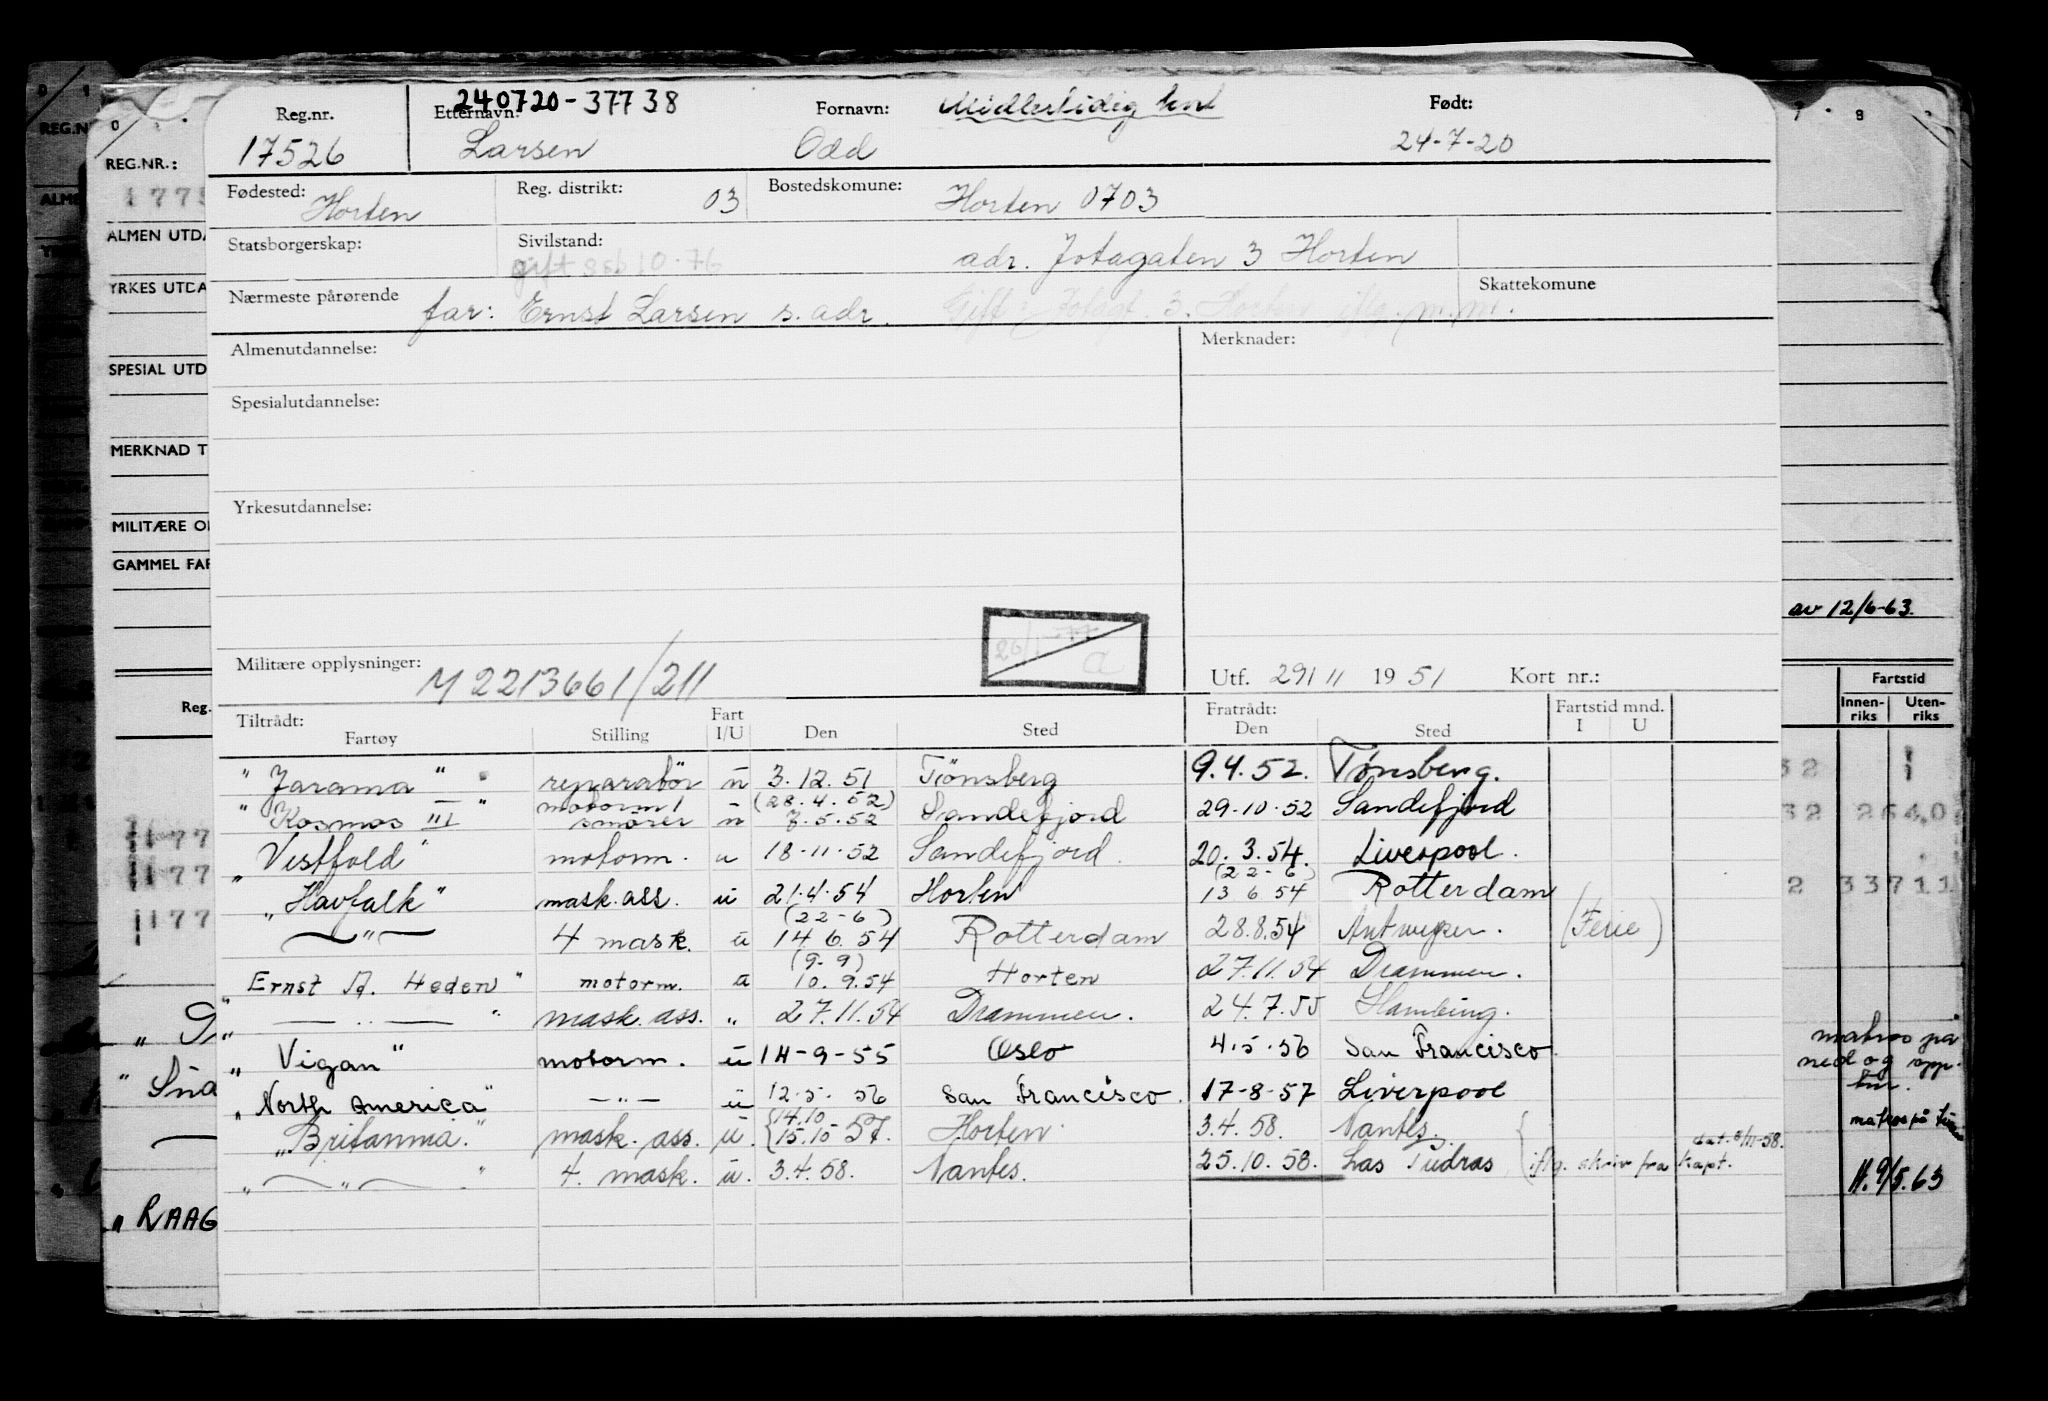 240720-37738
Reg.nr. Etternavn: Fornavn: Midlertidig kort Født:
17526 Larsen Odd 24-7-20
Fødested: Horten Reg. distrikt: 03 Bostedskomune: Horten 0703
Statsborgerskap: Sivilstand: gift adr. Jotagaten 3 Horten
Nærmeste pårørende far: Ernst Larsen s. adr. Skattekomune
Almenutdannelse: Merknader:
Spesialutdannelse:
Yrkesutdannelse:
Militære opplysninger: M 2213661/211 a Utf. 29/11 1951 Kort nr.:
Tiltrådt: Fart Fratrådt: Fartstid mnd.
Fartøy Stilling I/U Den Sted Den Sted I U
"Jarama" reparatör u 3.12.51 Tönsberg 9.4.52. Tønsberg.
"Kosmos III" motorm/ smörer u (28.4.52) 7.5.52 Sandefjord 29-10-52 Sandefjord
"Vestfold" motorm. u 18-11-52 Sandefjord. 20.3.54. Liverpool.
"Havfalk" mask.ass. u 21.4.54 Horten (22-6) 13 6 54 Rotterdam
—"— 4 mask. u (22-6) 14 6. 54 Rotterdam 28.8.54 Antwerpen. (Ferie)
"Ernst A. Heden" motorm. u (9-9) 10. 9.54 Horten 27.11.54 Drammen.
"— " —" mask. ass. " 27.11.54 Drammen. 24.7.55 Hamburg.
"Vigan" motorm. u 14-9-55 Oslo 4.5.56 San Francisco
"North America" —"— u 12.5.56 San Francisco. 17-8-57 Liverpool
"Britannia." mask. ass. u. {14.10 15.10 57. Horten. 3.4.58. Nantes.
"—"— " 4. mask. u. 3.4.58. Nantes. 25.10.58. Las { iflg. skriv fra Kapt. dat. 8/11-58.
REG.NR.:
ALMEN UTDA
YRKES UTDA
SPESIAL UTD
MERKNAD T
MILITÆRE O
GAMMEL FAR
Reg.
"RAAG
av 12/6-63.
Fartstid
Innen- Uten-
riks riks
32
32 264,0
2 33711
matros på
ned og opp-
tur.
matros på